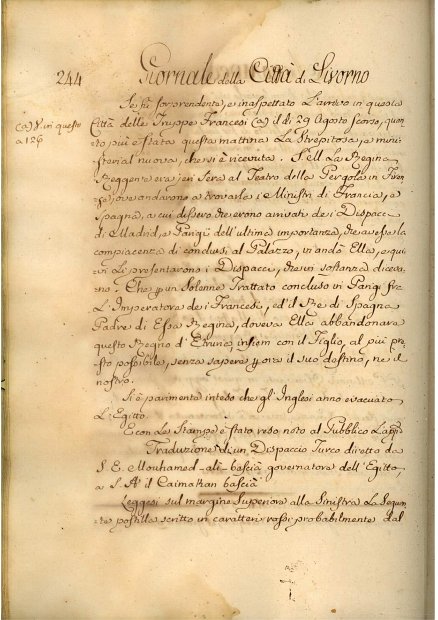 244 Giornale della Città di Livorno
Se fu sorprendente, e inaspettato L'arrivo in questa
(a) V. in questo Città delle Truppe Francesi (a) il dì 29 Agosto scorso, quan
a 126 to più è stata questa mattina La Strepitosa, e mini
sterial nuova, che si è ricevuta. S. ell La Regina
Reggente era jeri Sera al Teatro della Pergola in Firen
ze, ove andarono a trovarla i Ministri di Francia, e
Spagna, a cui dissero che erono arrivati dei Dispacci
di Madrid, e Parigi dell'ultima importanza, che avesse la
compiacenza di condursi al Palazzo, vi andò Ella, e qui
vi Li presentarono i Dispacci, che in sostanza diceva
no. Che per un Solenne Trattato concluso in Parigi fra
L'Imperatore dei Francesi, ed il Re di Spagna
Padre di Essa Regina, doveva Ella abbandonare
questo Regno d'Etruria insiem con il Figlio, al più pre
sto possibile, senza sapere p. ora il suo destino, ne il
nostro.
Si è parimente inteso che gl'Inglesi anno evacuato
L'Egitto.
E con Le Stampe è stato reso noto al Pubblico
Traduzione di un Dispaccio Turco diretto da
S. E. Mouhamed-ali-bascià governatore dell'Egitto,
a S. A. il Caimakan bascià
Leggesi sul margine Superiore alla Sinistra La Seguen
te postilla scritta in caratteri rossi probabilmente dal